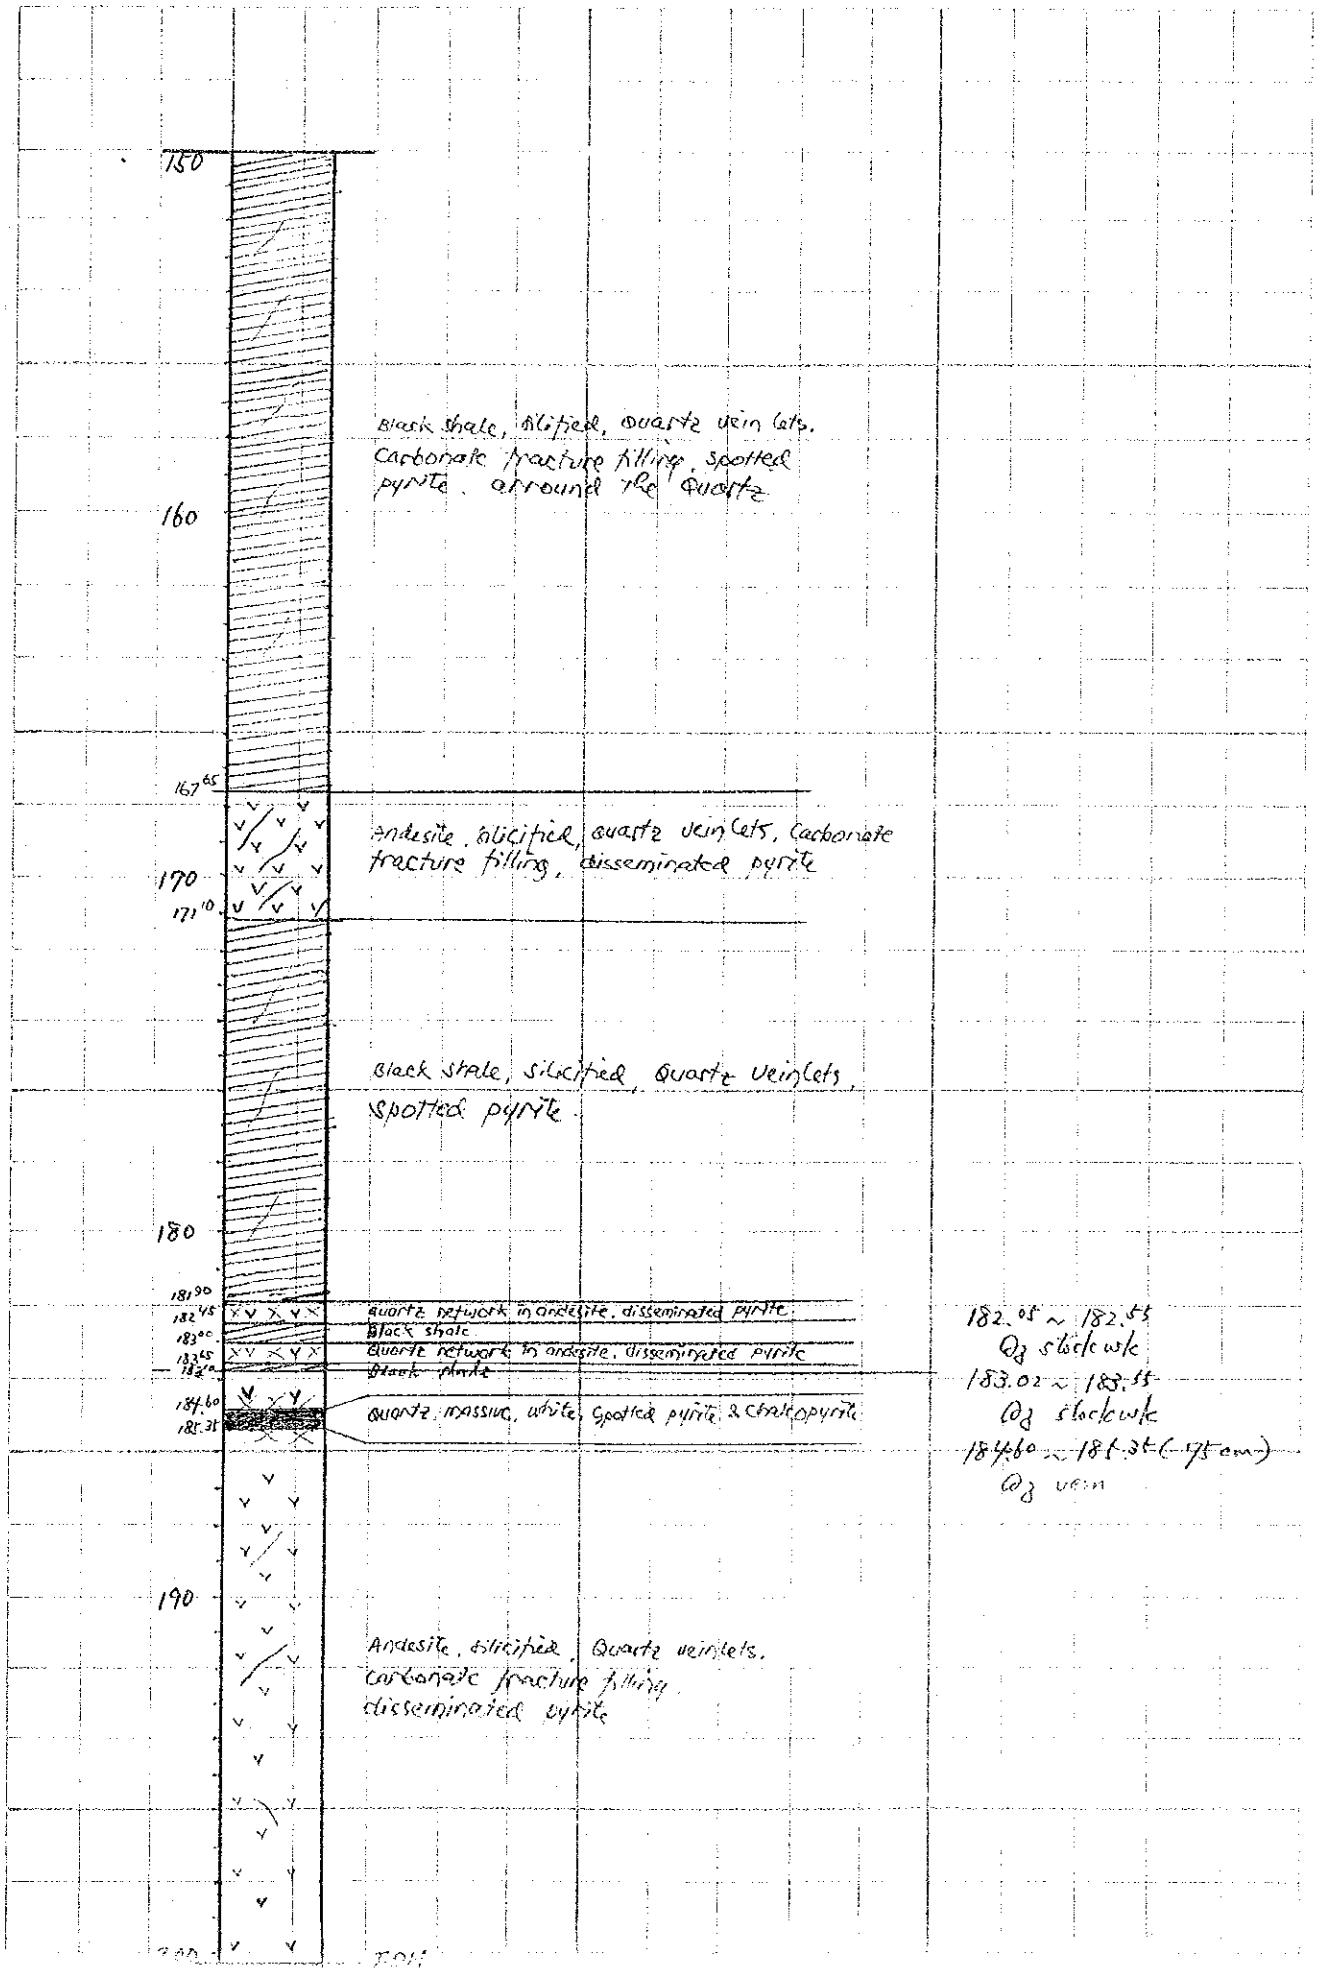 150
Black shale, silified, quartz vein lets.
Carbonate fracture filling, spotted
pyrite. arround the quartz
160
167.65
Andesite, silicified, quartz veinlets, Carbonate
fracture filling, disseminated pyrite
170
171.10
Black shale, silicified, Quartz veinlets,
spotted pyrite.
180
181.90
quartz network in andesite, disseminated pyrite
182.45
Black shale
183.00
Quartz network in andesite, disseminated pyrite
183.65
Black shale
182.05 ~ 182.55
Qz stockwk
183.02 ~ 183.55
Qz stockwk
184.60
quartz, massive, white, spotted pyrite & chalcopyrite
185.35
184.60 ~ 185.35 (75 cm)
Qz vein
190
Andesite, silicified, Quartz veinlets.
carbonate fracture filling
disseminated pyrite
200